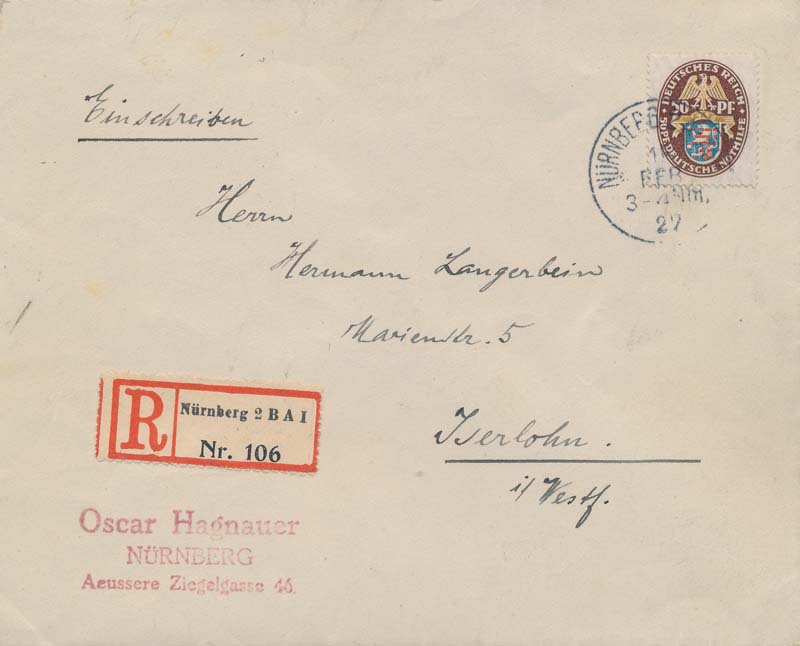 Einschreiben
DEUTSCHES REICH
50 PF
50PF DEUTSCHE NOTHILFE
NÜRNBERG
FEB
3-4 Nm.
27
Herrn
Hermann Langerbein
Marienstr. 5
Iserlohn.
i/ Westf.
R
Nürnberg 2 B A I
Nr. 106
Oscar Hagnauer
NÜRNBERG
Aeussere Ziegelgasse 46.